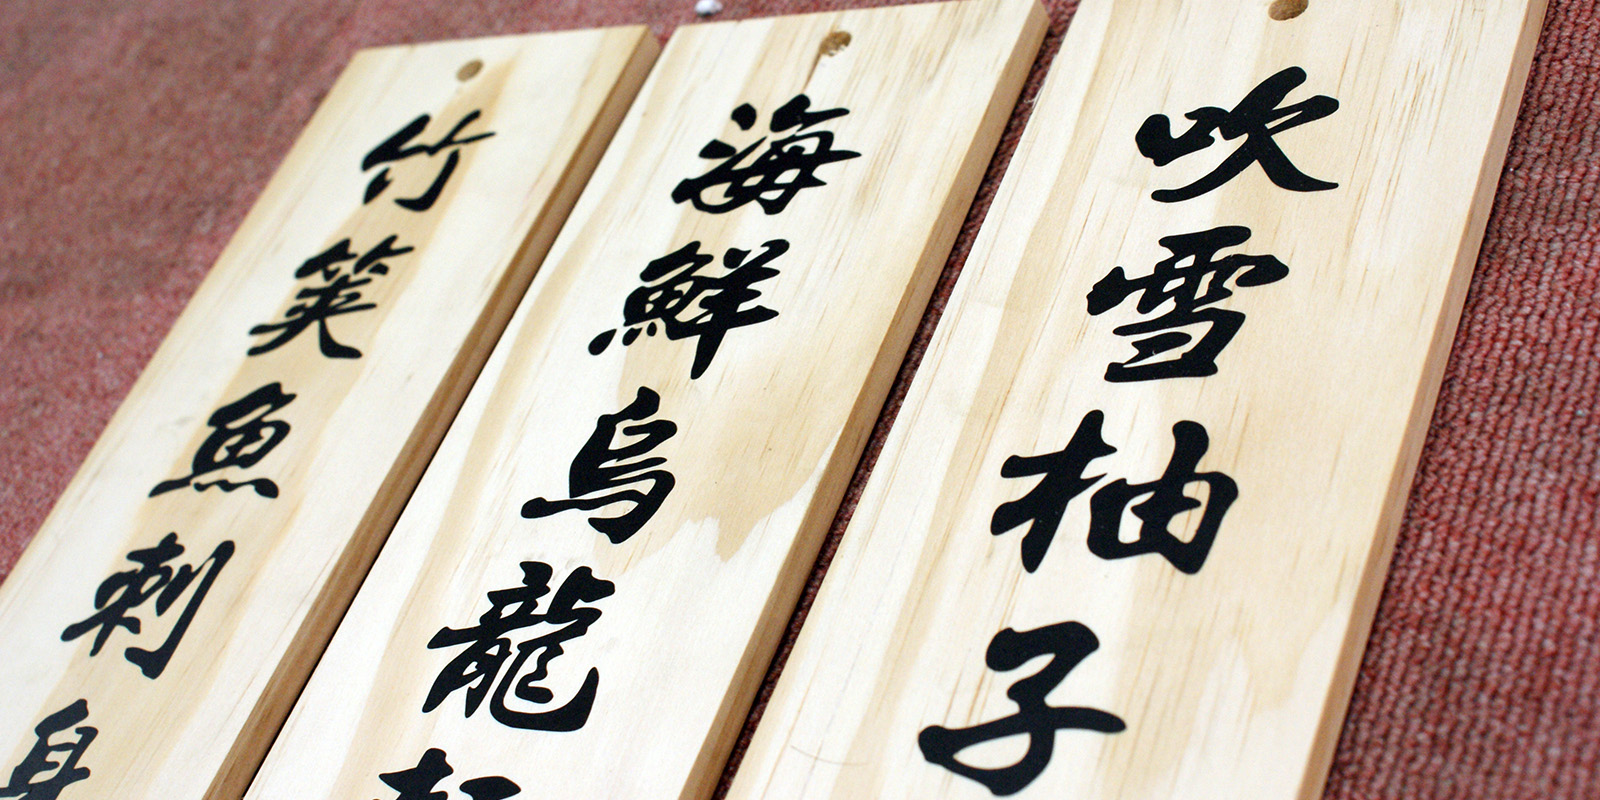 吹雪柚子
海鮮烏龍
竹筴魚刺身